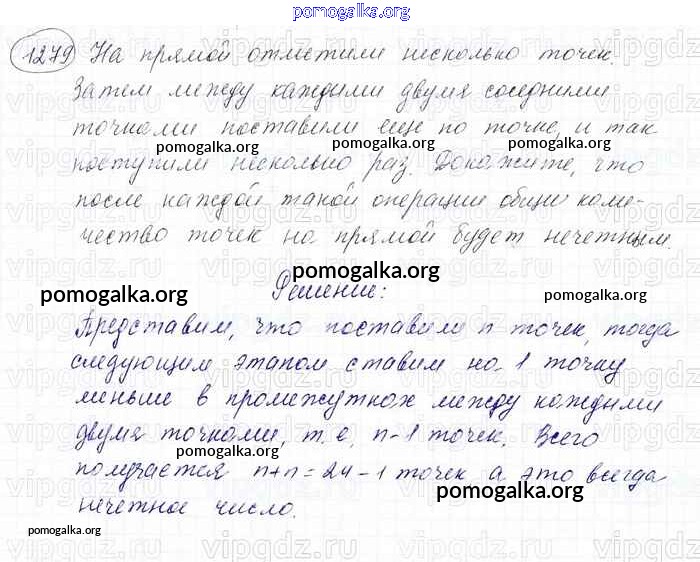 pomogalka.org
1279 На прямой отметили несколько точек.
Затем между каждыми двумя соседними
точками поставили еще по точке, и так
pomogalka.org pomogalka.org
поступили несколько раз. Докажите, что
после каждой такой операции общее коли-
чество точек на прямой будет нечетным.
pomogalka.org
Решение:
pomogalka.org pomogalka.org
Представим, что поставили n точек, тогда
следующим этапом ставим на 1 точку
меньше в промежутках между каждыми
двумя точками, т.е. n-1 точек. Всего
pomogalka.org
получается n+n=2n-1 точек а это всегда
pomogalka.org
нечетное число.
pomogalka.org
pomogalka.org pomogalka.org